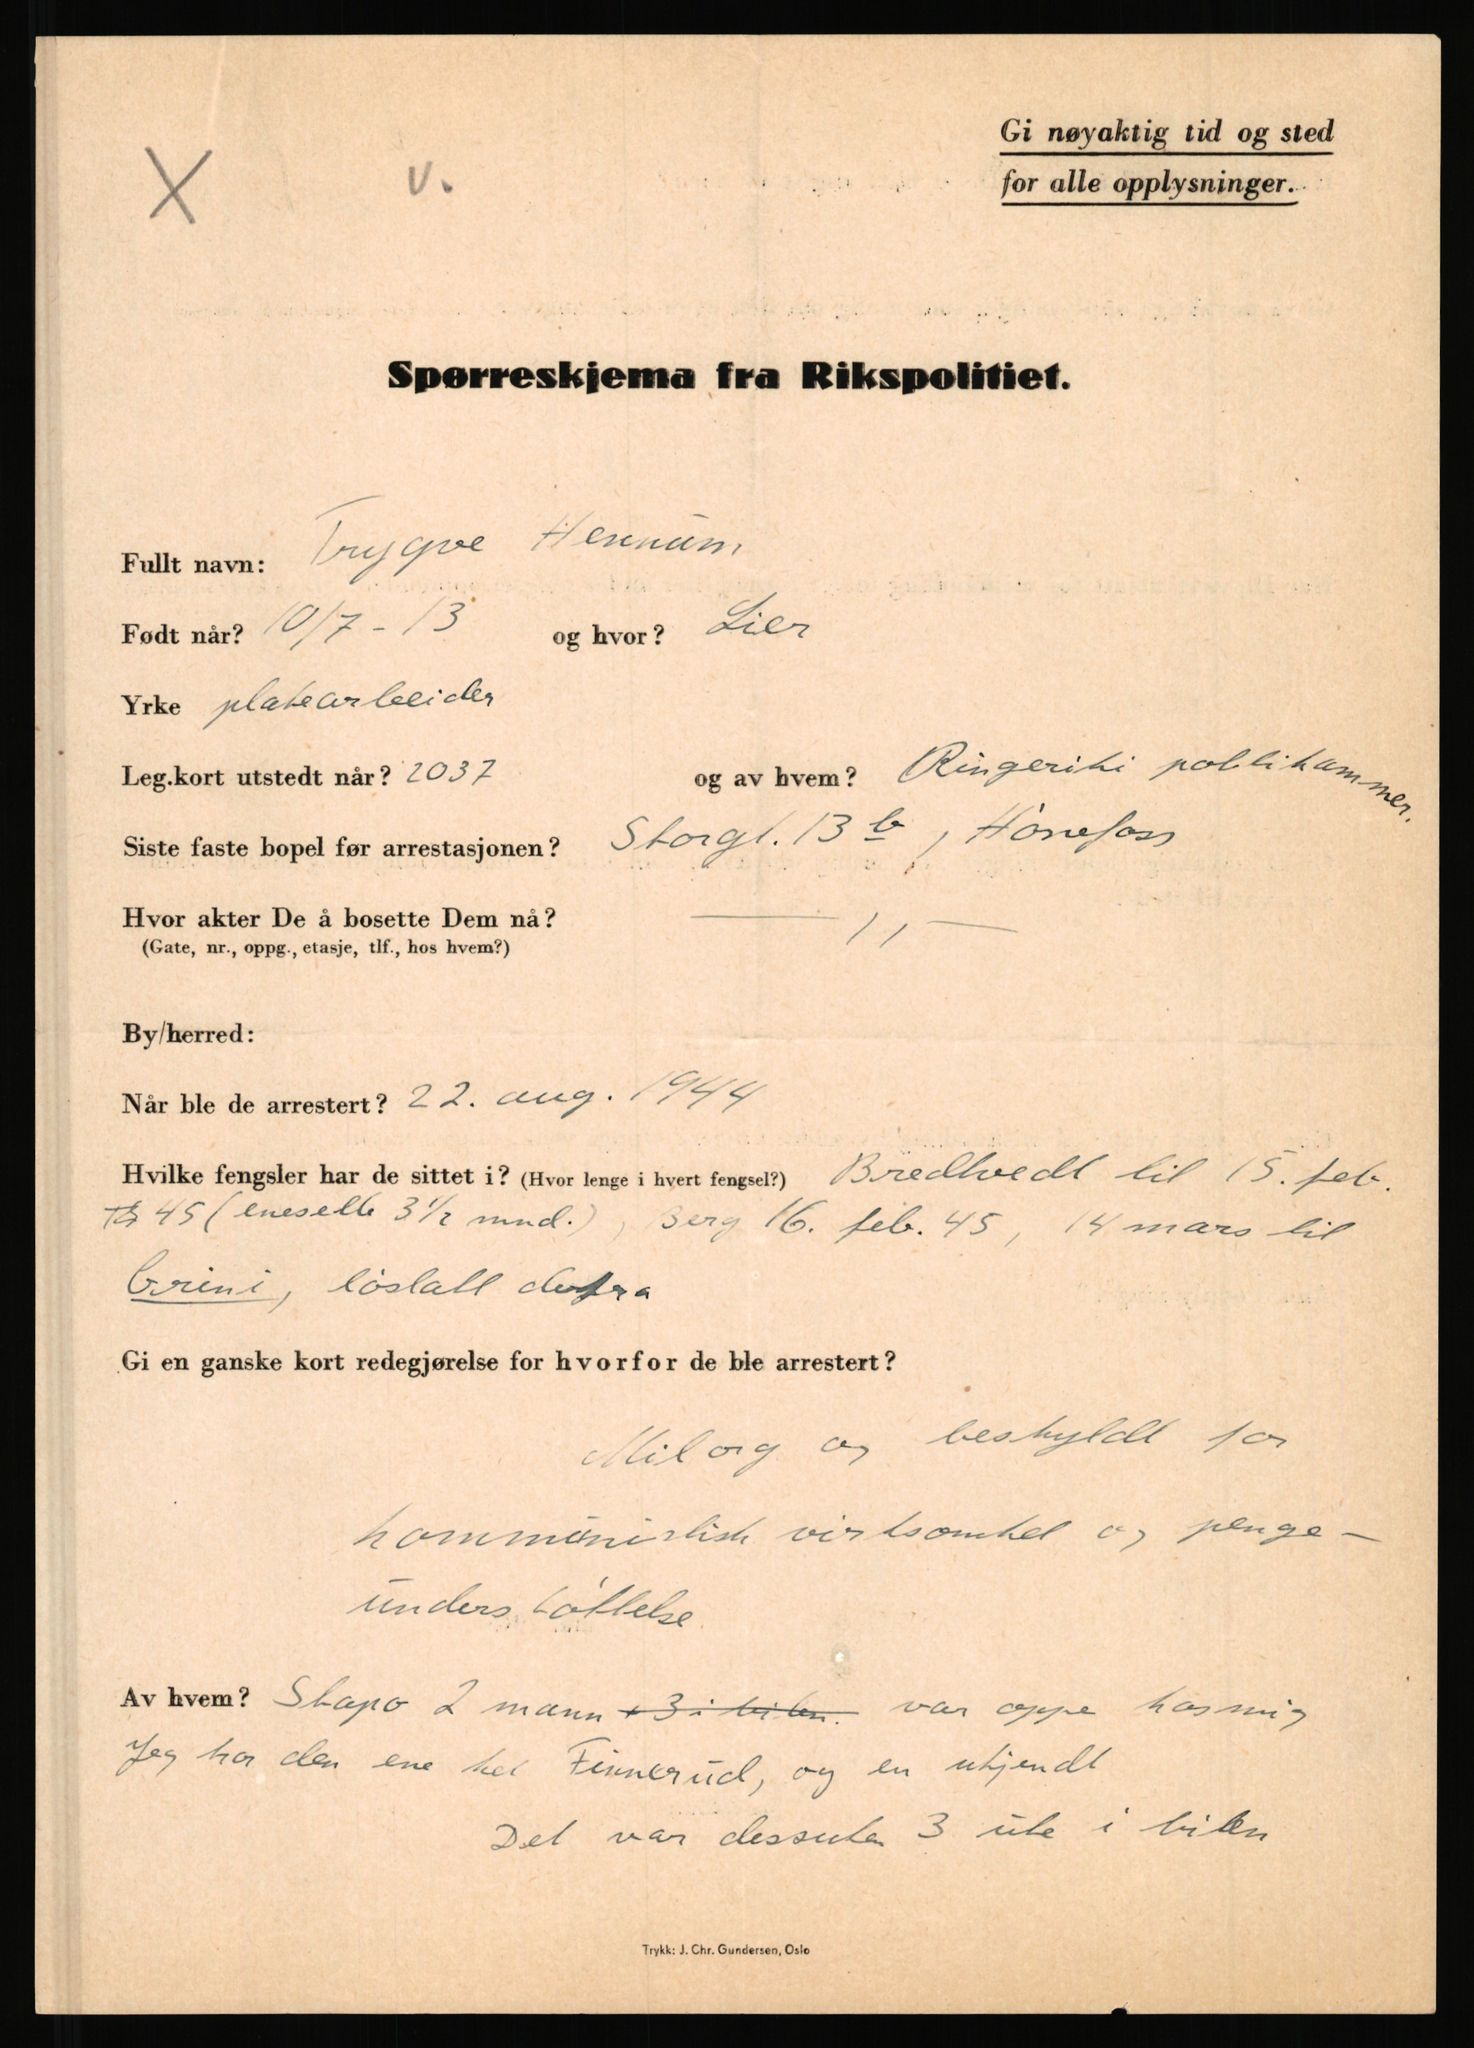 X v.
Gi nøyaktig tid og sted
for alle opplysninger.
Spørreskjema fra Rikspolitiet.
Fullt navn: Trygve Hennum
Født når? 10/7 - 13 og hvor? Lier
Yrke platearbeider
Leg.kort utstedt når? 2037 og av hvem? Ringeriki politikammer.
Siste faste bopel før arrestasjonen? Storgt. 13 b, Hönefoss
Hvor akter De å bosette Dem nå? — ,, —
(Gate, nr., oppg., etasje, tlf., hos hvem?)
By/herred:
Når ble de arrestert? 22. aug. 1944
Hvilke fengsler har de sittet i? (Hvor lenge i hvert fengsel?) Bredtvedt til 15. feb.
45 (eneselle 3 1/2 mnd.), Berg 16. feb. 45, 14 mars til
Grini, löslatt derfra
Gi en ganske kort redegjørelse for hvorfor de ble arrestert?
Milorg og beskyldt for
kommunistisk virksomhet og penge-
understöttelse
Av hvem? Stapo 2 mann + 3 i bilen. var oppe hos mig
Jeg hor den ene het Finnerud, og en ukjendt
Det var dessuten 3 ute i bilen
Trykk: J. Chr. Gundersen, Oslo